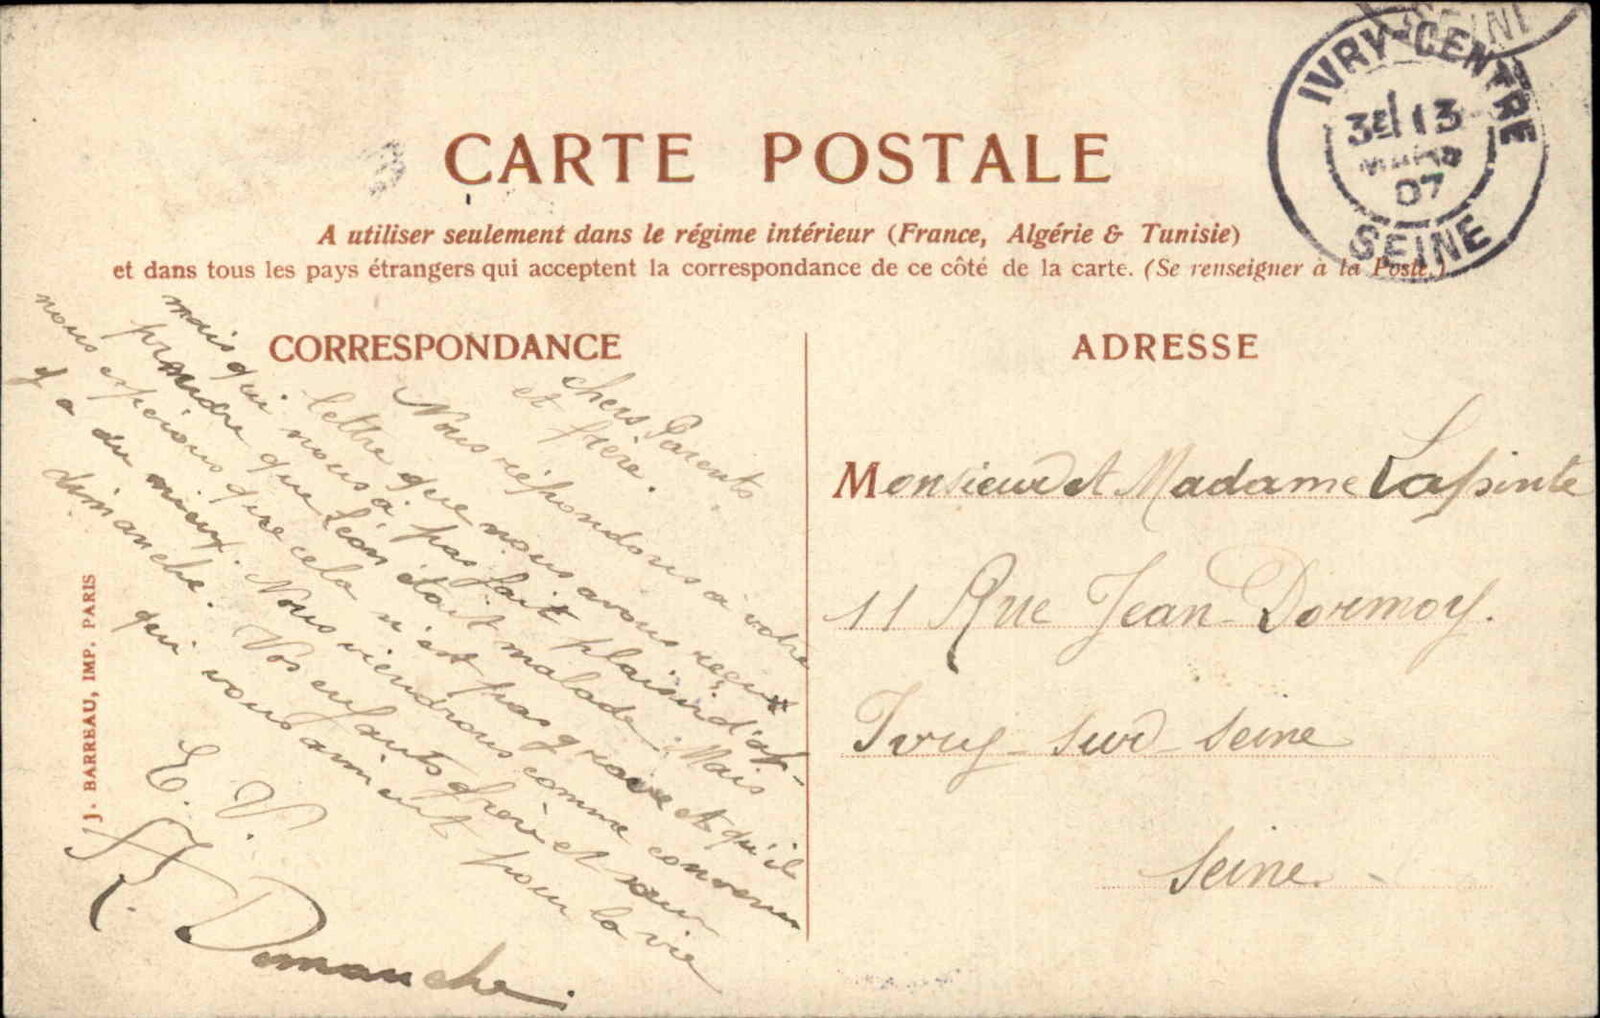 CARTE POSTALE
A utiliser seulement dans le régime intérieur (France, Algérie & Tunisie)
et dans tous les pays étrangers qui acceptent la correspondance de ce côté de la carte. (Se renseigner à la Poste.)
IVRY-CENTRE
3E 13
MARS
07
SEINE
SEINE
CORRESPONDANCE
chers Parents
et frère.
Nous répondons à votre
lettre que nous avons reçu
mais qui nous a pas fait plaisir d'ap-
prendre que Léon était malade. Mais
nous espérons que cela n'est pas grave et qu'il
y a du mieux. Nous viendrons comme convenu
dimanche. Vos enfants frère et sœur
qui vous aiment pour la vie
E. V.
A. Dimanche.
ADRESSE
Monsieur et Madame Lapinte
11 Rue Jean-Dormoy.
Ivry-sur-Seine
Seine.
J. BARREAU, IMP. PARIS